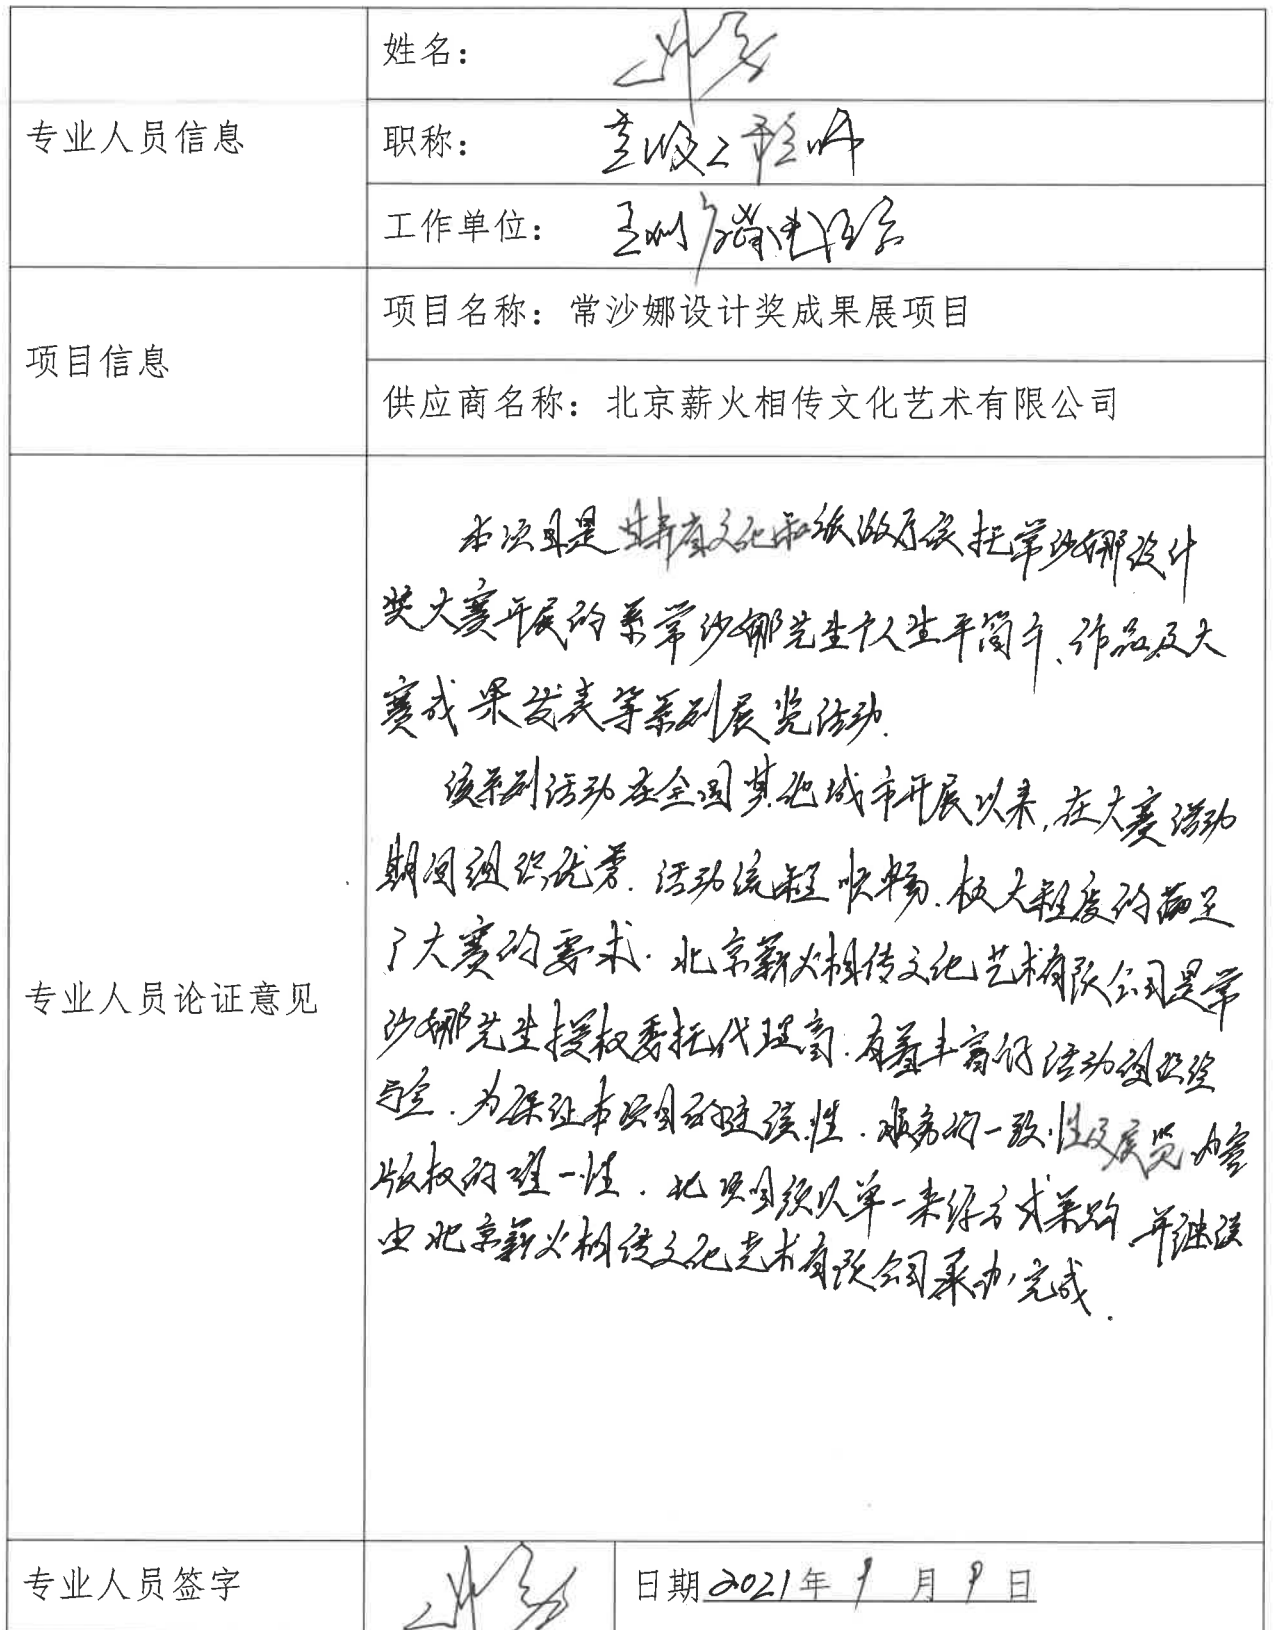 专业人员信息
姓名：
职称：高级工程师
工作单位：
项目信息
项目名称：常沙娜设计奖成果展项目
供应商名称：北京薪火相传文化艺术有限公司
专业人员论证意见
本项目是 文化和旅游厅依托常沙娜设计
奖大赛开展的系常沙娜先生个人生平简介、作品及大
赛成果发表等系列展览活动.
该系列活动在全国其他城市开展以来,在大赛活动
期间组织优秀.活动流程顺畅.极大程度的满足
了大赛的要求.北京薪火相传文化艺术有限公司是常
沙娜先生授权委托代理商.有着丰富的活动组织经
验.为保证本项目的连续性.服务的一致性及展览内容
版权的唯一性.此项目须以单一来源方式采购.并继续
由北京薪火相传文化艺术有限公司承办完成.
专业人员签字
日期2021年9月9日